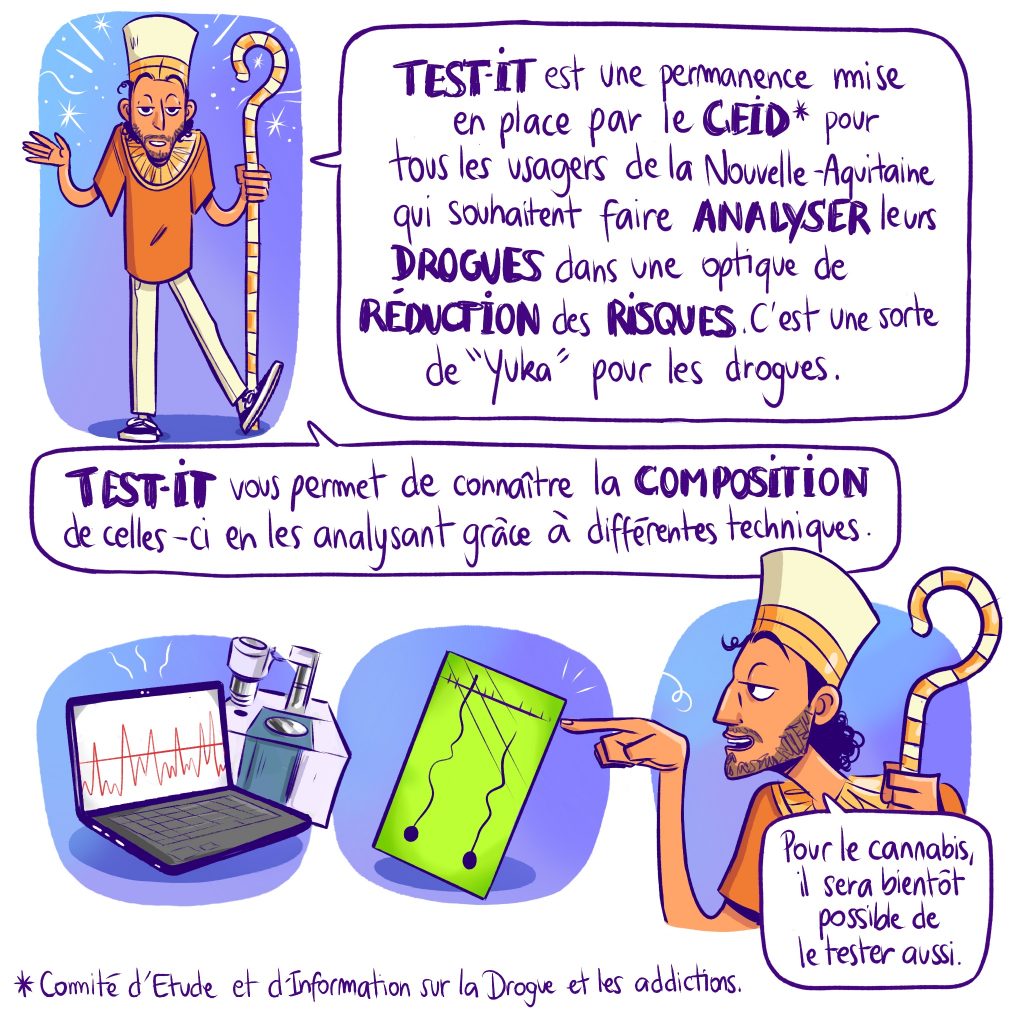 TEST-iT est une permanence mise
en place par le CEID* pour
tous les usagers de la Nouvelle-Aquitaine
qui souhaitent faire ANALYSER leurs
DROGUES dans une optique de
RÉDUCTION des RISQUES. C'est une sorte
de "Yuka" pour les drogues.
TEST-iT vous permet de connaître la COMPOSITION
de celles-ci en les analysant grâce à différentes techniques.
Pour le cannabis,
il sera bientôt
possible de
le tester aussi.
* Comité d'Etude et d'Information sur la Drogue et les addictions.